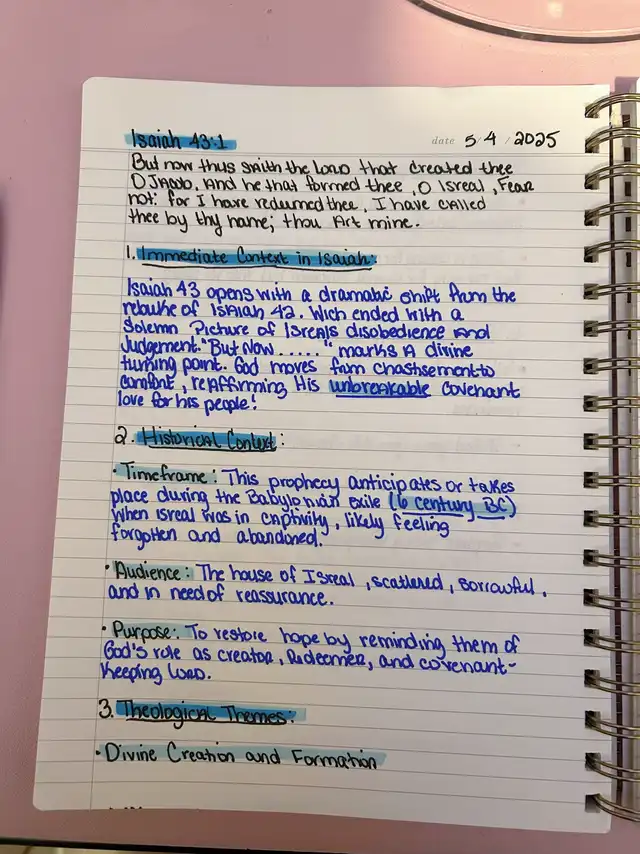 Isaiah 43:1
date 5/4/2025
But now thus saith the LORD that created thee
O JAcob, And he that formed thee, O Isreal, Fear
not: for I have redeemed thee, I have called
thee by thy name; thou Art mine.
1. Immediate Context in Isaiah:
Isaiah 43 opens with a dramatic shift from the
rebuke of ISAIAH 42. Wich ended with a
Solemn Picture of ISreals disobedience and
Judgement. "But Now....." marks A divine
turning point. God moves from chastisement to
comfort, reAffirming His unbreakable covenant
love for his people!
2. Historical Context:
• Timeframe: This prophecy anticipates or takes
place during the Babylonian exile (6 century BC)
When Isreal was in captivity, likely feeling
forgotten and abandoned.
• Audience: The house of ISreal, scattered, sorrowful,
and in need of reassurance.
• Purpose: To restore hope by reminding them of
God's role as creator, Redeemer, and covenant-
Keeping LORD.
3. Theological Themes:
• Divine Creation and Formation